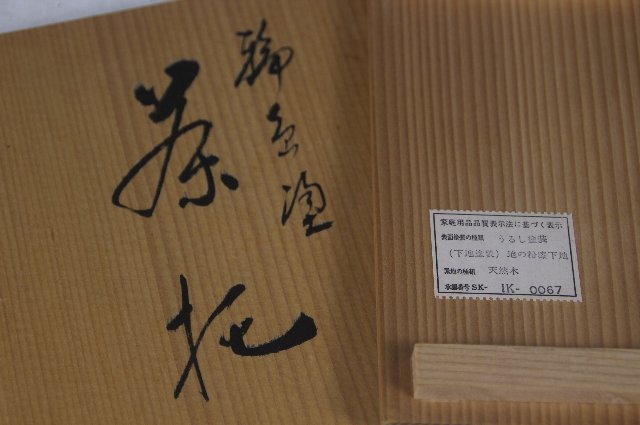 輪島塗
茶托
家庭用品品質表示法に基づく表示
表面塗装の種類 うるし塗装
(下地塗装) 地の粉漆下地
素地の種類 天然木
承認番号 SK- IK- 0067